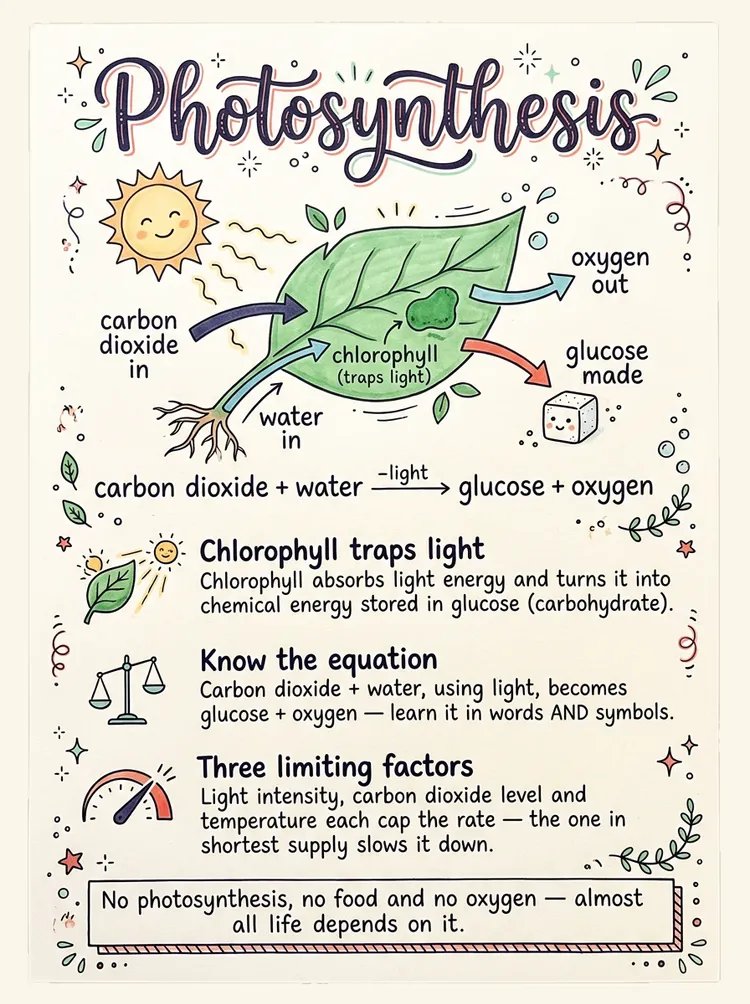 Photosynthesis
carbon
dioxide
in
oxygen
out
chlorophyll
(traps light)
glucose
made
water
in
carbon dioxide + water –light⟶ glucose + oxygen
Chlorophyll traps light
Chlorophyll absorbs light energy and turns it into
chemical energy stored in glucose (carbohydrate).
Know the equation
Carbon dioxide + water, using light, becomes
glucose + oxygen — learn it in words AND symbols.
Three limiting factors
Light intensity, carbon dioxide level and
temperature each cap the rate — the one in
shortest supply slows it down.
No photosynthesis, no food and no oxygen — almost
all life depends on it.